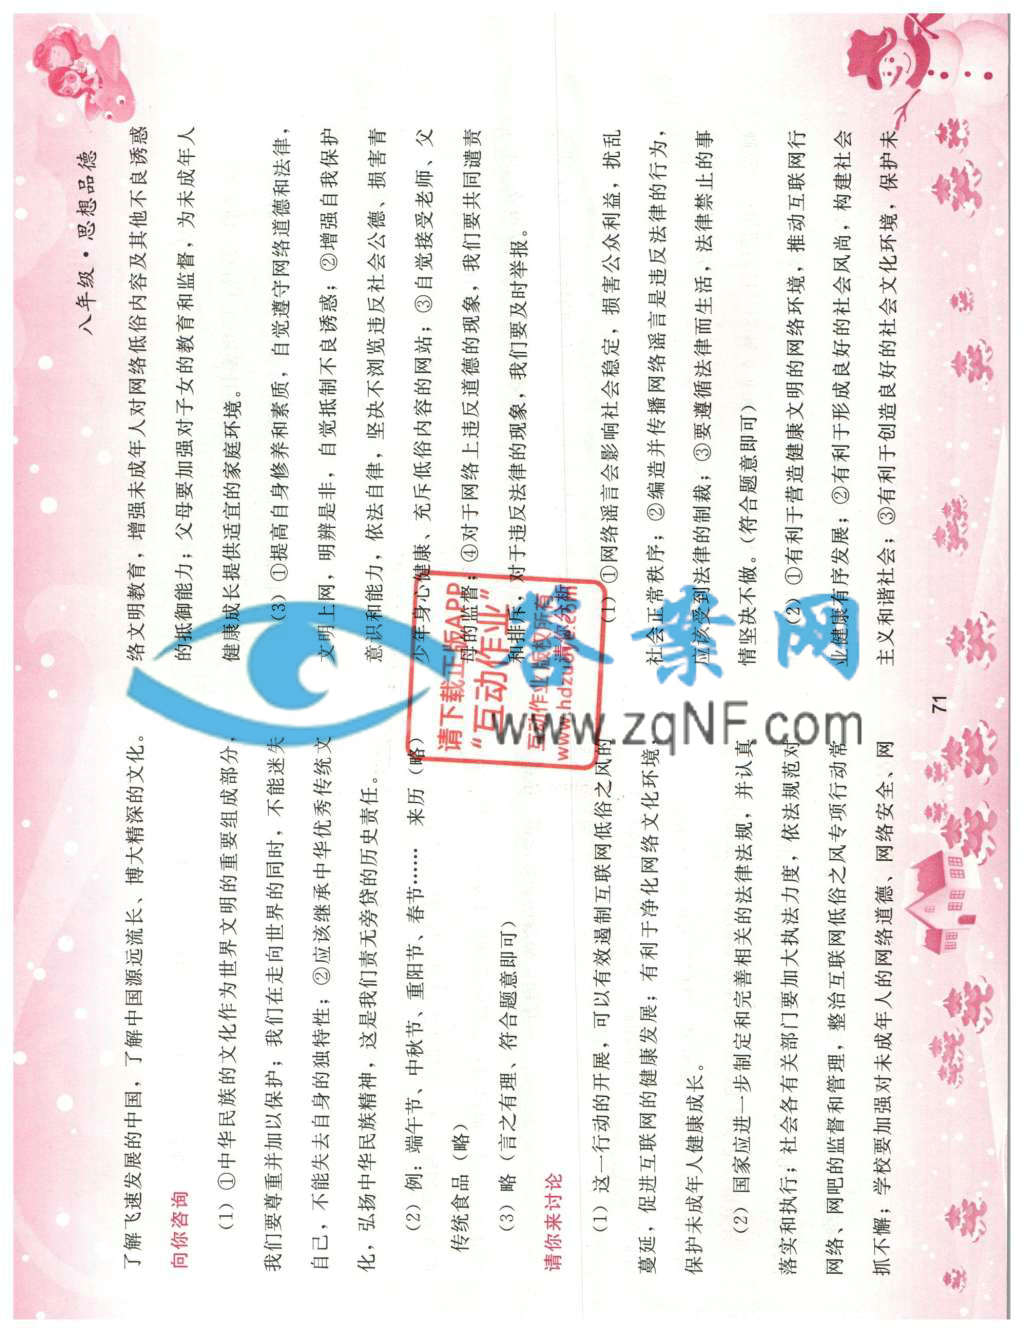 八年级·思想品德
了解飞速发展的中国，了解中国源远流长、博大精深的文化。
向你咨询
（1）①中华民族的文化作为世界文明的重要组成部分，
我们要尊重并加以保护；我们在走向世界的同时，不能迷失
自己，不能失去自身的独特性；②应该继承中华优秀传统文
化，弘扬中华民族精神，这是我们责无旁贷的历史责任。
（2）例：端午节、中秋节、重阳节、春节…… 来历（略）
传统食品（略）
（3）略（言之有理、符合题意即可）
请你来讨论
（1）这一行动的开展，可以有效遏制互联网低俗之风的
蔓延，促进互联网的健康发展；有利于净化网络文化环境，
保护未成年人健康成长。
（2）国家应进一步制定和完善相关的法律法规，并认真
落实和执行；社会各有关部门要加大执法力度，依法规范对
网络、网吧的监督和管理，整治互联网低俗之风专项行动常
抓不懈；学校要加强对未成年人的网络道德、网络安全、网
络文明教育，增强未成年人对网络低俗内容及其他不良诱惑
的抵御能力；父母要加强对子女的教育和监督，为未成年人
健康成长提供适宜的家庭环境。
（3）①提高自身修养和素质，自觉遵守网络道德和法律，
文明上网，明辨是非，自觉抵制不良诱惑；②增强自我保护
意识和能力，依法自律，坚决不浏览违反社会公德、损害青
少年身心健康、充斥低俗内容的网站；③自觉接受老师、父
母的监督；④对于网络上违反道德的现象，我们要共同谴责
和排斥，对于违反法律的现象，我们要及时举报。
请你分析
（1）①网络谣言会影响社会稳定，损害公众利益，扰乱
社会正常秩序；②编造并传播网络谣言是违反法律的行为，
应该受到法律的制裁；③要遵循法律而生活，法律禁止的事
情坚决不做。（符合题意即可）
（2）①有利于营造健康文明的网络环境，推动互联网行
业健康有序发展；②有利于形成良好的社会风尚，构建社会
主义和谐社会；③有利于创造良好的社会文化环境，保护未
71
请下载正版APP
“互动作业”
互动作业 版权所有
www.hdzuoye.com
答案网
www.zqNF.com